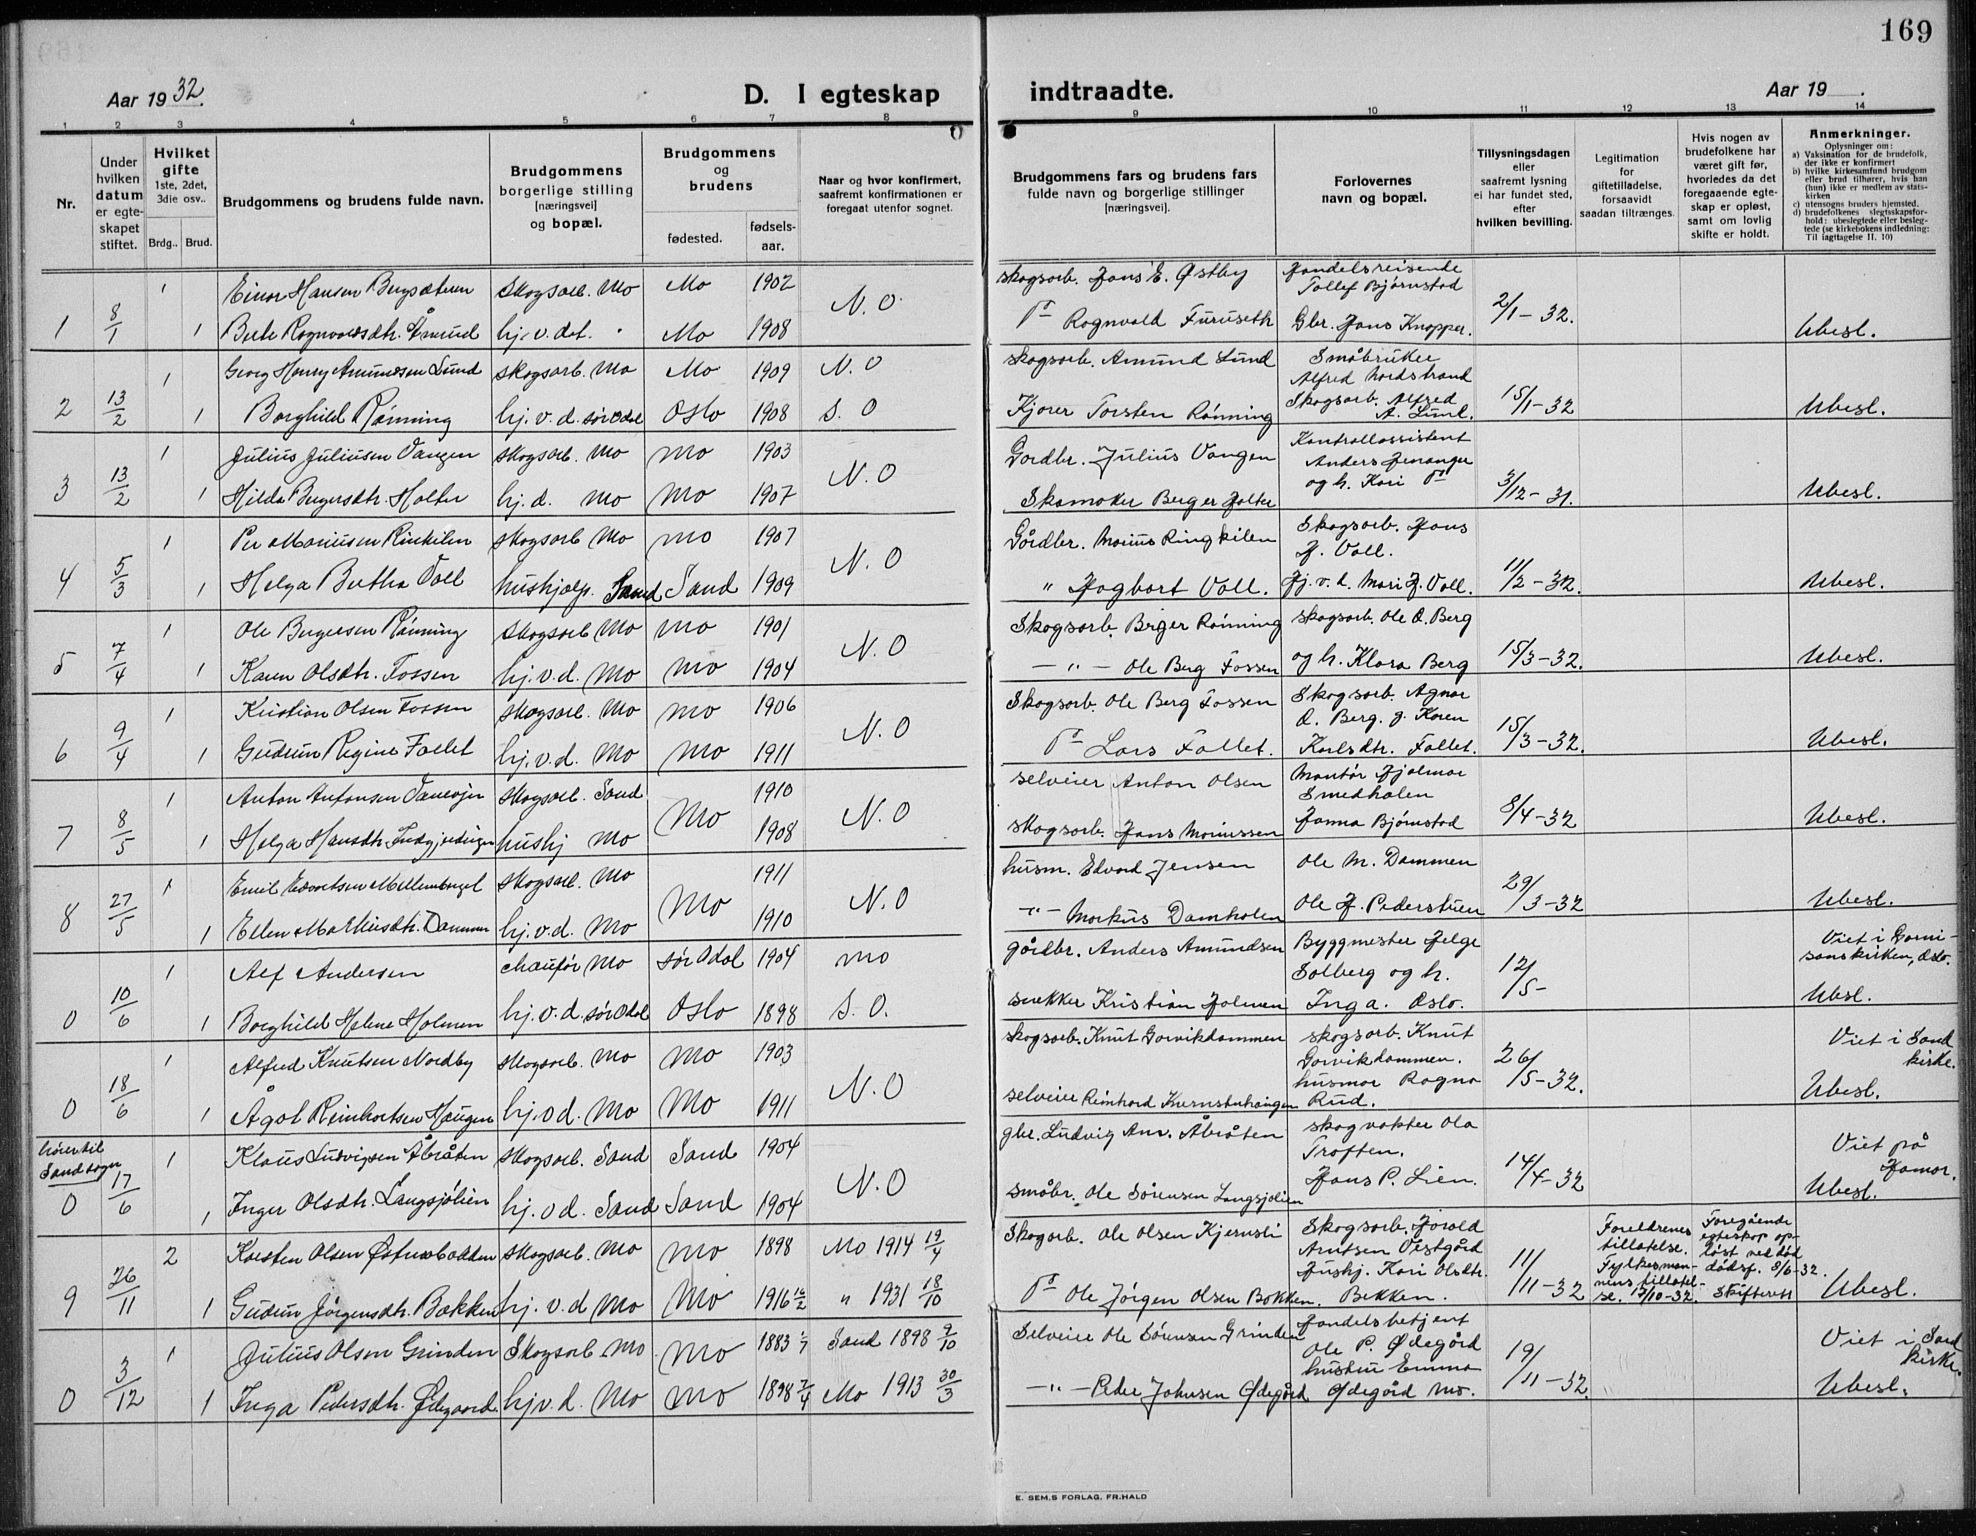 169
Aar 1932.
D. I egteskap
indtraadte.
Aar 19 .
1 2 3 4 5 6 7 8
9 10 11 12 13 14
Nr.
Under hvilken datum er egte-skapet stiftet.
Hvilket gifte
1ste, 2det, 3die osv..
Brdg.. Brud.
Brudgommens og brudens fulde navn.
Brudgommens borgerlige stilling [næringsvei] og bopæl.
Brudgommens og brudens
fødested.
fødsels-aar.
Naar og hvor konfirmert, saafremt konfirmationen er foregaat utenfor sognet.
Brudgommens fars og brudens fars fulde navn og borgerlige stillinger [næringsvei].
Forlovernes navn og bopæl.
Tillysningsdagen eller saafremt lysning ei har fundet sted, efter hvilken bevilling.
Legitimation for giftetilladelse, forsaavidt saadan tiltrænges.
Hvis nogen av brudefolkene har været gift før, hvorledes da det foregaaende egte-skap er opløst, samt om lovlig skifte er holdt.
Anmerkninger.
Oplysninger om:
a) Vaksination for de brudefolk, der ikke er konfirmert
b) hvilke kirkesamfund brudgom eller brud tilhører, hvis han (hun) ikke er medlem av stats-kirken
c) utensogns bruders hjemsted.
d) brudefolkenes slegtsskapsfor-hold: ubeslegtede eller besleg-tede (se kirkebokens indledning: Til iagttagelse II. 10)
1 8/1 1 Einar Hansen Bergsæteren skogsarb. Mo Mo 1902 N.O. skogsarb. Hans E. Østby Handelsreisende Tollef Bjørnstad 2/1-32.
1 hj. v. det. Mo 1908 Ragnvald Furuseth Gbr. Hans Knapper. Ubesl.
2 13/2 1 Georg Henry Amundsen Lund skogsarb. Mo Mo 1909 N.O skogsarb. Amund Lund Småbruker Alfred Nordstrand 15/1-32
1 Borghild Rønning hj. v. d. Sør Odal Oslo 1908 S.O Kjører Torsten Rønning Skogsarb. Alfred A. Lund. Ubesl.
3 13/2 1 Julius Juliusen Vangen skogsarb. Mo Mo 1903 N.O Gårdbr. Julius Vangen Kontrollassistent Anders 3/12-31.
1 Hilda Bergersdtr. Holter hj. d. Mo Mo 1907 Skomaker Berger Holter og h. Kari Ubesl.
4 5/3 1 Per Mariusen skogsarb Mo Mo 1907 N.O Gårdbr. Marius Ringkilen Skogsarb. Hans H. Voll. 11/2-32.
1 Helga Bertha Voll hushjelp. Sand Sand 1909 " Hagbart Voll. Hj. v. d. Mari H. Voll. Ubesl.
5 7/4 1 Ole Bergersen Rønning skogsarb Mo Mo 1901 N.O Skogsarb. Birger Rønning skogsarb. Ole O. Berg 15/3-32.
1 Karen Olsdtr. Fossen hj. v. d. Mo Mo 1904 — " — Ole Berg Fossen og h. Klara Berg Ubesl.
6 9/4 1 Kristian Olsen Fossen skogsarb. Mo Mo 1906 N.O Skogsarb. Ole Berg Fossen Skogsarb. Agnar O. Berg. g. Karen 15/3-32.
1 Gudrun Regine Fallet hj. v. d. Mo Mo 1911 Lars Fallet. Karlsdtr. Fallet. Ubesl.
7 8/5 1 Anton Antonsen skogsarb. Sand Mo 1910 N.O selveier Anton Olsen Montør Hjalmar Smedholen 8/4-32
1 Helga Hansdtr. hushj Mo 1908 skogsarb. Hans Mariussen Hanna Bjørnstad Ubesl.
8 27/5 1 Emil Edvartsen skogsarb. Mo Mo 1911 N.O husm. Edvard Jensen Ole M. Dammen 29/3-32
1 Ellen Markusdtr. Dammen hj. v. d. Mo 1910 — " — Markus Damholen Ole H. Pederstuen Ubesl.
0 10/6 1 Alf Andersen chaufør Mo Sør Odal 1904 Mo gårdbr. Anders Amundsen Byggmester Helge Solberg og h. 12/5- Viet i Garni-sonskirken, Oslo.
1 Borghild Helene Holmen hj. v. d. Sør Odal Oslo 1898 S.O. snekker Kristian Holmen Inga. Oslo. Ubesl.
0 18/6 1 Alfred Knutsen Nordby skogsarb. Mo Mo 1903 N.O skogsarb. Knut Gorvikdammen skogsarb. Knut Gorvikdammen. 26/5-32. Viet i Sand kirke.
1 Ågot Reinhartsen Haugen hj. v d. Mo Mo 1911 selveier Reinhard husmor Ragna Rud. Ubesl.
hører til Sand sogn
0 17/6 1 Klaus Ludvigsen Åbråten skogsarb. Sand Sand 1904 N.O gbr. Ludvig And. Åbråten skogvokter Ola Troften. 14/4-32 Viet på Hamar.
1 Inger Olsdtr. Langsjølien hj. v d. Sand Sand 1904 småbr. Ole Sørensen Langsjølien Hans P. Lien. Ubesl.
9 26/11 2 Karsten Olsen skogsarb. Mo Mo 1898 Mo 1914 19/4 Skogarb. Ole Olsen Kjernsli Skogsarb. Harald Arntsen Vestgård 11/11-32 Foreldrenes tillatelse. Fylkesman-nens tillatel-se. 15/10-32. Foregående egteskap op-løst ved død dødsf. 8/6-32. Skifterett
1 Gudrun Jørgensdtr. Bakken hj. v. d Mo Mo 1916 16/2 " 1931 18/10 Ole Jørgen Olsen Bakken. Hushj. Kari Olsdtr. Bekken. Ubesl.
0 3/12 1 Julius Olsen Grinden Skogsarb Mo Mo 1883 Sand 1898 9/10 Selveier Ole Sørensen Grinden Handelsbetjent Ole P. Ødegård 19/11-32. Viet i Sand kirke.
1 Inga Pedersdtr. Ødegaard hj v. d. Mo Mo 1898 7/4 Mo 1913 30/3 — " — Peder Johnsen Ødegård hustru Emma Ødegård Mo. Ubesl.
E. SEM.S FORLAG, FR.HALD